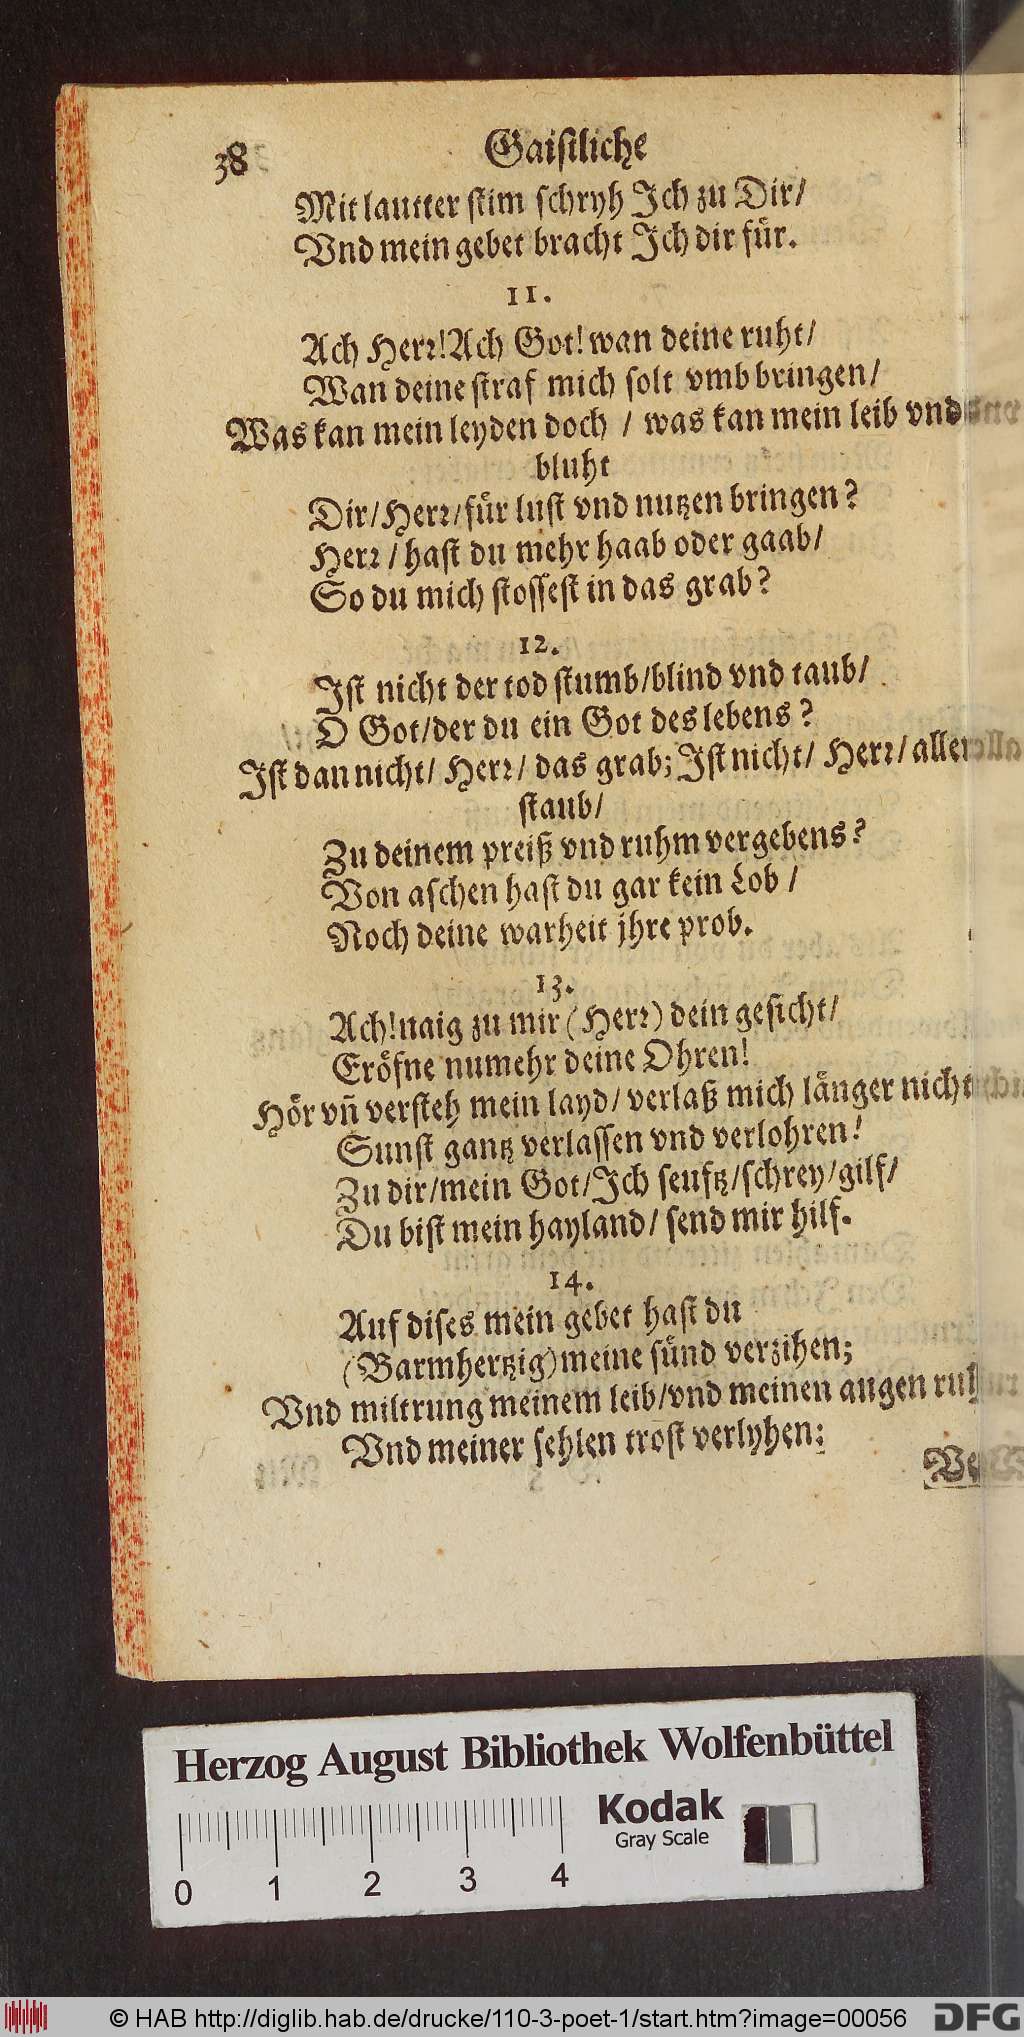 38 Gaistliche
Mit lautter stim schryh Ich zu Dir/
Vnd mein gebet bracht Ich dir für.
11.
Ach Herr! Ach Got! wan deine ruht/
Wan deine straf mich solt vmbbringen/
Was kan mein leyden doch / was kan mein leib vnd
bluht
Dir/Herr/für lust vnd nutzen bringen?
Herr / hast du mehr haab oder gaab/
So du mich stossest in das grab?
12.
Ist nicht der tod stumb/blind vnd taub/
O Got/der du ein Got des lebens?
Ist dan nicht/ Herr/ das grab; Ist nicht/ Herr/ aller
staub/
Zu deinem preiß vnd ruhm vergebens?
Von aschen hast du gar kein Lob /
Noch deine warheit jhre prob.
13.
Ach! naig zu mir (Herr) dein gesicht/
Eröfne numehr deine Ohren!
Hör vn̄ versteh mein layd/ verlaß mich länger nicht
Sunst gantz verlassen vnd verlohren!
Zu dir/mein Got/Ich seuftz/schrey/gilf/
Du bist mein hayland/ send mir hilf.
14.
Auf dises mein gebet hast du
(Barmhertzig) meine sünd verzihen;
Vnd miltrung meinem leib/vnd meinen augen ruh
Vnd meiner sehlen trost verlyhen;
Herzog August Bibliothek Wolfenbüttel
Kodak
Gray Scale
0 1 2 3 4
© HAB http://diglib.hab.de/drucke/110-3-poet-1/start.htm?image=00056
DFG